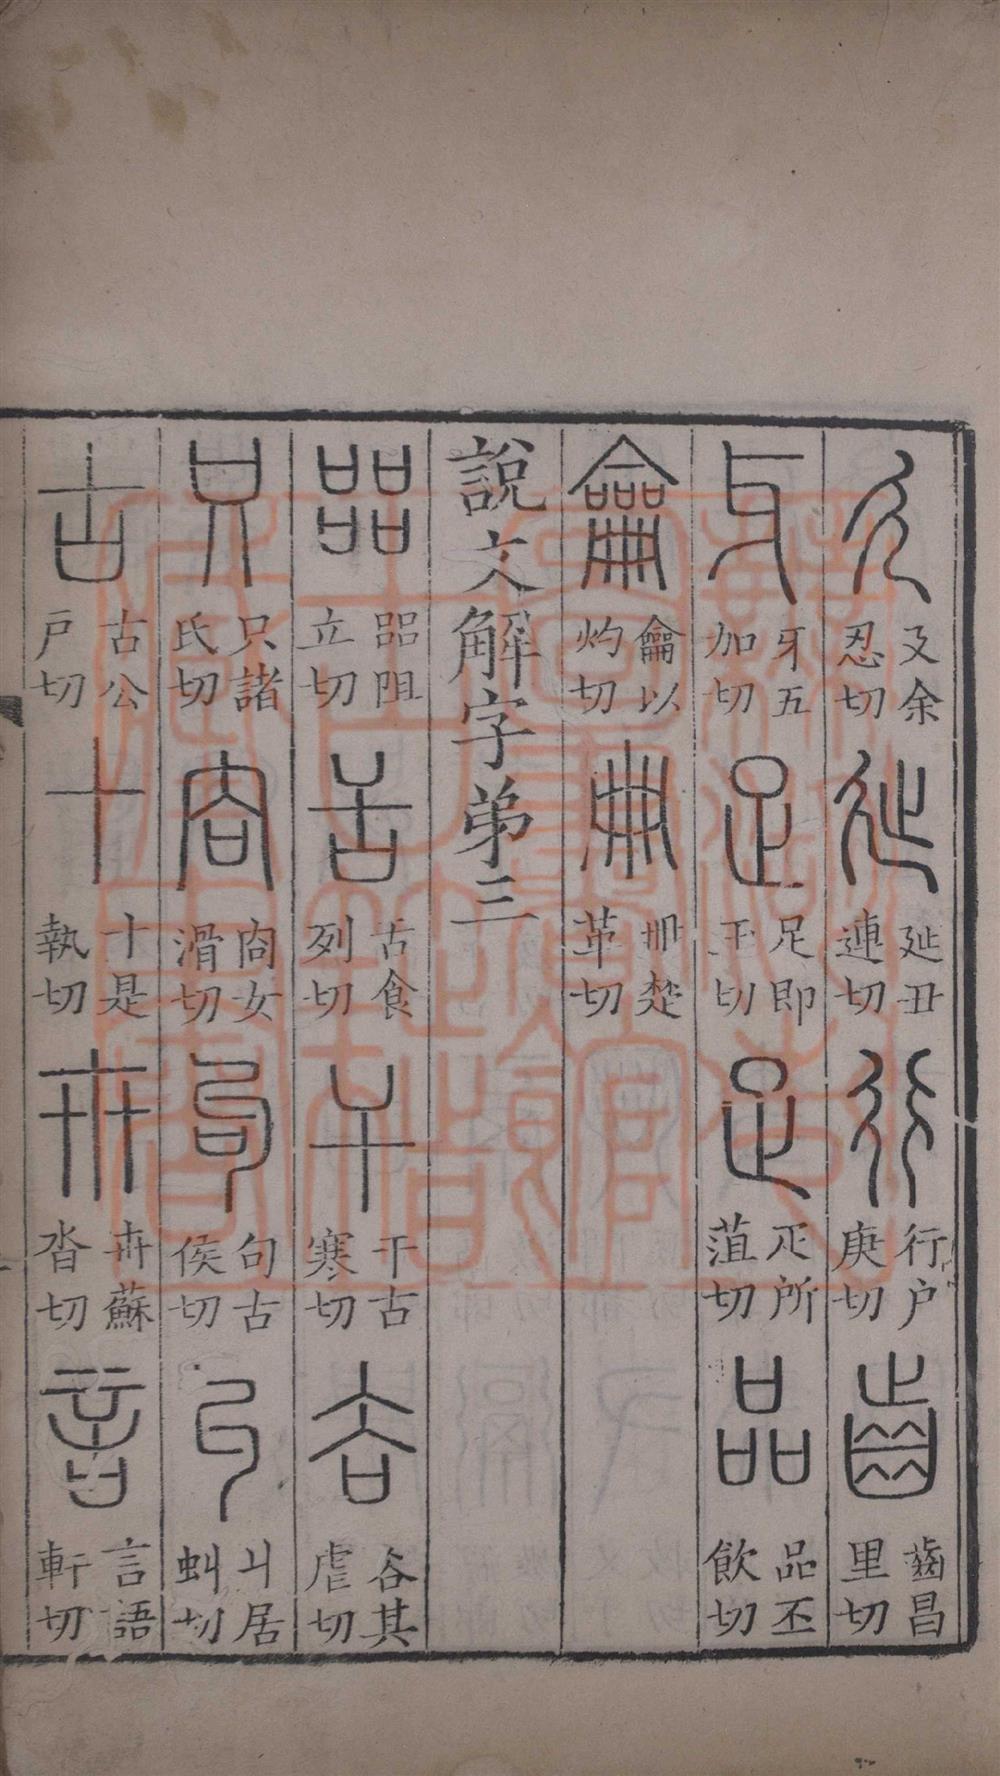 廴廴余忍切㢟㢟丑連切行行户庚切齒齒昌里切
牙牙五加切足足即玉切疋疋所菹切品品丕飲切
龠龠以灼切冊冊楚革切
說文解字弟三
㗊㗊阻立切舌舌食列切干干古寒切𧮫𧮫其虐切
只只諸氏切㕯㕯女滑切句句古侯切丩丩居虯切
古古公戶切十十是執切卅卅蘇沓切言言語軒切